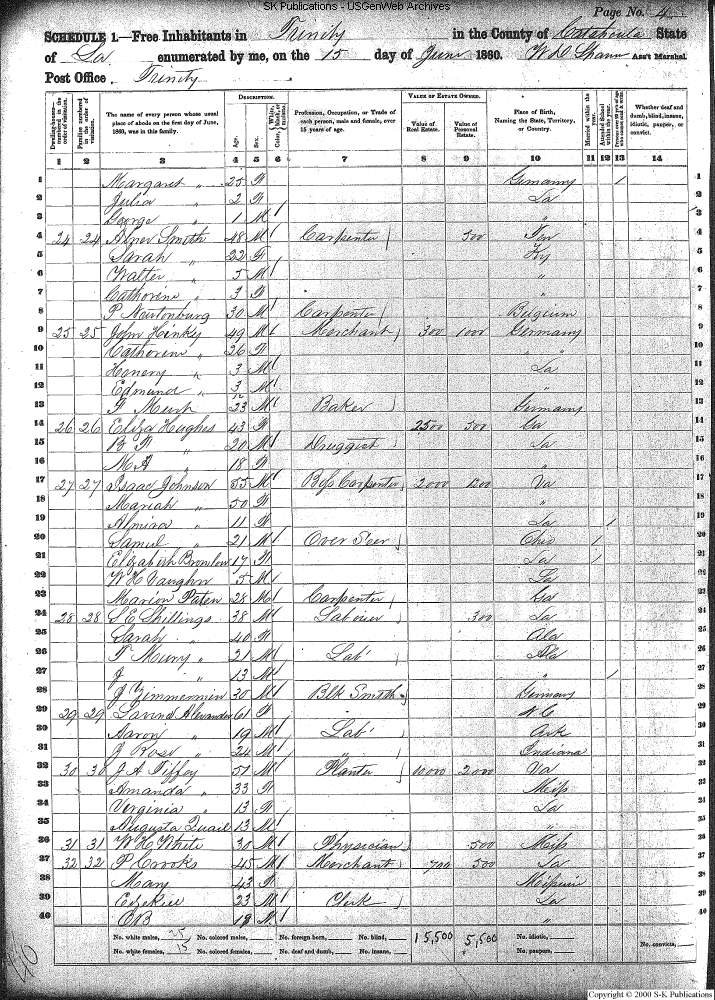 SK Publications - USGenWeb Archives
Page No. 4
SCHEDULE 1.—Free Inhabitants in Trinity in the County of Catahoula State
of La enumerated by me, on the 15 day of June 1860. Ass't Marshal.
Post Office Trinity
Dwelling-houses—numbered in the order of visitation.
Families numbered in the order of visitation.
The name of every person whose usual place of abode on the first day of June, 1860, was in this family.
DESCRIPTION.
Age.
Sex.
Color, White, black, or mulatto.
Profession, Occupation, or Trade of each person, male and female, over 15 years of age.
VALUE OF ESTATE OWNED.
Value of Real Estate.
Value of Personal Estate.
Place of Birth, Naming the State, Territory, or Country.
Married within the year.
Attended School within the year.
Whether deaf and dumb, blind, insane, idiotic, pauper, or convict.
1 2 3 4 5 6 7 8 9 10 11 12 13 14
1 Margaret " 25 F Germany / 1
2 Julia " 2 F La 2
3 George " 1 M / " 3
4 24 24 Abner Smith 48 M / Carpenter 500 Ten 4
5 Sarah " 22 F Ky 5
6 Walter " 5 M / " 6
7 Catherine " 3 F " 7
8 P 30 M / Carpenter Belgium 8
9 25 25 John Hinky 49 M / Merchant 300 1000 Germany 9
10 Catherine " 26 F " " 10
11 Honery " 3 M / La 11
12 Edmund " 3/12 M / " 12
13 23 M / Baker Germany 13
14 26 26 Eliza Hughes 43 F 2500 500 Ga 14
15 B F " 20 M / Druggist La 15
16 M A " 18 F " 16
17 27 27 Isaac Johnson 55 M / Bos Carpenter 2000 1200 Va 17
18 Mariah " 50 F " 18
19 Almira " 11 F La / 19
20 Samul " 21 M / Over Seer Ohio / 20
21 Elizabeth 17 F La / 21
22 W H Vaughn 5 M / La 22
23 Marion Paten 28 M / Carpenter Ga 23
24 28 28 S E Shillings 38 M / Laborer 300 La 24
25 Sarah " 40 F Ala 25
26 T " 21 M / Lab' Ala 26
27 J " 13 M / " / 27
28 J Zimmermin 30 M / Blk Smith Germany 28
29 29 29 Alexander 61 F N C 29
30 Aaron " 19 M / Lab' Ark 30
31 J Rose " 24 M / " Indiana 31
32 30 30 J A Tiffey 51 M / Planter 10000 2000 Va 32
33 Amanda " 33 F Miss 33
34 Virginia " 13 F La 34
35 Augusta Quail 13 M / " 35
36 31 31 W H White 30 M / Physician 500 Miss 36
37 32 32 P Crooks 45 M / Merchant 700 500 La 37
38 Mary 43 F 38
39 Ezekiel 23 M / Clerk La 39
40 E B 18 M / " 40
No. white males, 25 No. colored males, No. foreign born, No. blind, 15,500 5,500 No. idiotic,
No. white females, 15 No. colored females, No. deaf and dumb, No. insane, No. paupers, No. convicts,
40
Copyright © 2000 S-K Publications